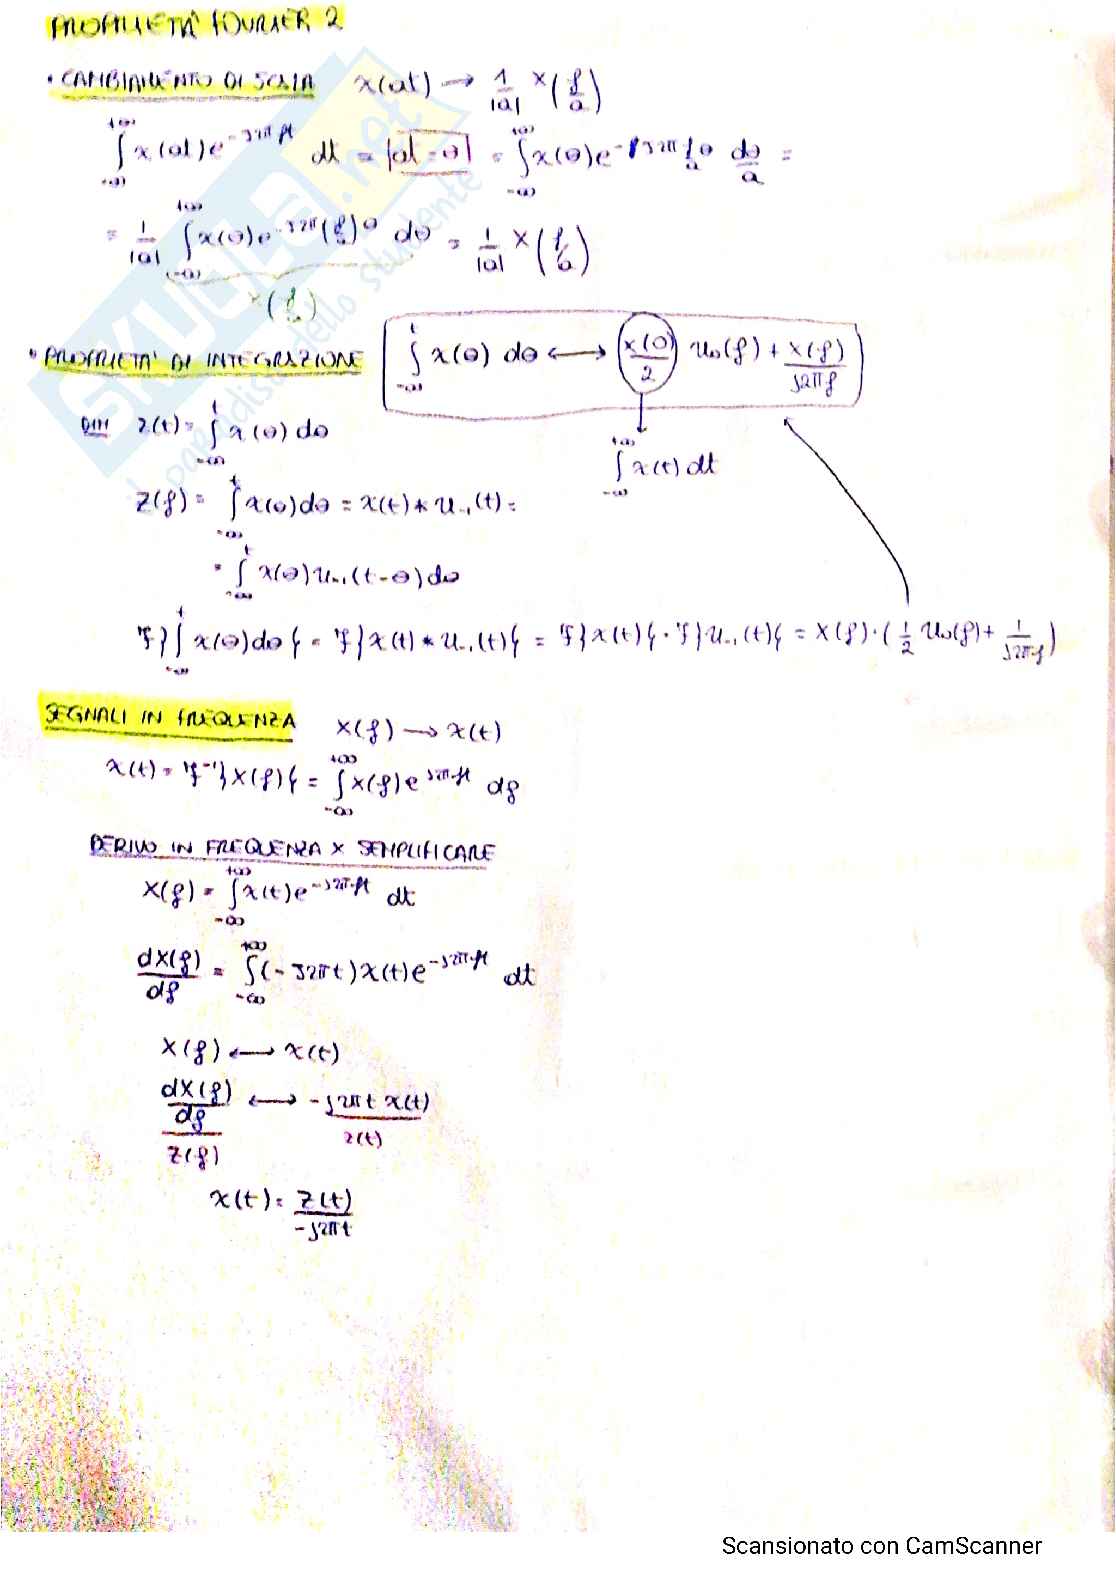 PROPRIETÀ FOURIER 2
• CAMBIAMENTO DI SCALA x(at) → 1/|a| X(f/a)
∫_{-∞}^{+∞} x(at) e^{-j2πft} dt = |at = θ| = ∫_{-∞}^{+∞} x(θ) e^{-j2π f/a θ} dθ/a =
= 1/|a| ∫_{-∞}^{+∞} x(θ) e^{-j2π(f/a)θ} dθ = 1/|a| X(f/a)
X(f/a)
• PROPRIETA' DI INTEGRAZIONE ∫_{-∞}^{t} x(θ) dθ ⟷ X(0)/2 u₀(f) + X(f)/j2πf
DIM z(t) = ∫_{-∞}^{t} x(θ) dθ
∫_{-∞}^{+∞} x(t) dt
Z(f) = ∫_{-∞}^{t} x(θ) dθ = x(t) * u₋₁(t) =
= ∫_{-∞}^{t} x(θ) u₋₁(t-θ) dθ
F}∫_{-∞}^{t} x(θ) dθ{ = F}x(t) * u₋₁(t){ = F}x(t){ · F}u₋₁(t){ = X(f) · (1/2 u₀(f) + 1/j2πf)
SEGNALI IN FREQUENZA X(f) → x(t)
x(t) = F⁻¹}X(f){ = ∫_{-∞}^{+∞} X(f) e^{j2πft} df
DERIVO IN FREQUENZA X SEMPLIFICARE
X(f) = ∫_{-∞}^{+∞} x(t) e^{-j2πft} dt
dX(f)/df = ∫_{-∞}^{+∞} (-j2πt) x(t) e^{-j2πft} dt
X(f) ⟷ x(t)
dX(f)/df ⟷ -j2πt x(t)
Z(f) z(t)
x(t) = z(t)/-j2πt
SKUOLA.net
il paradiso dello studente
Scansionato con CamScanner